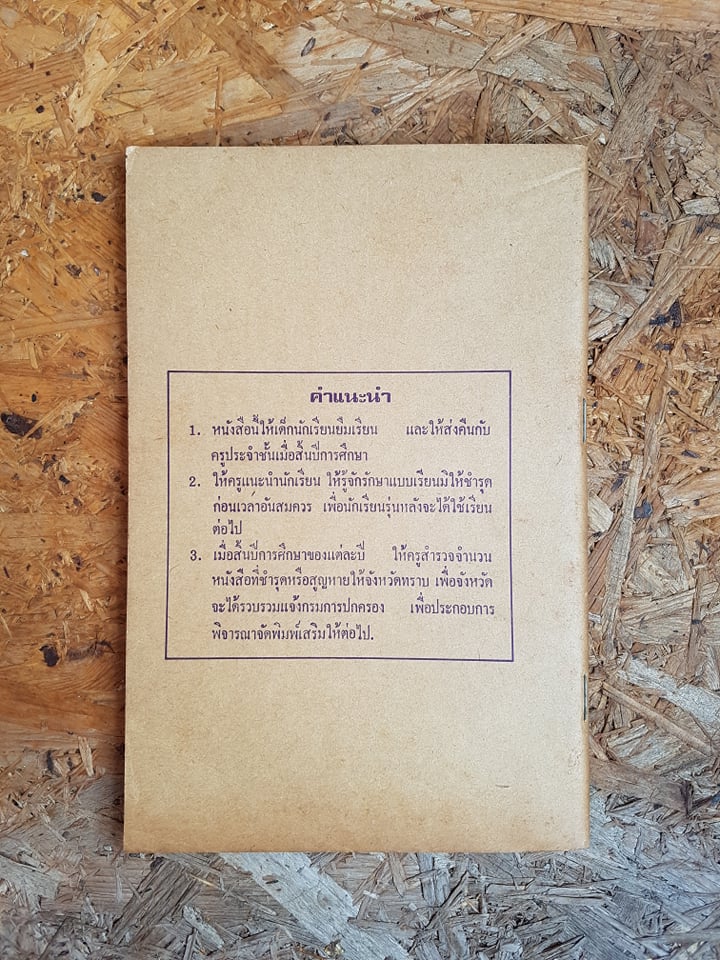 คำแนะนำ
1. หนังสือนี้ให้เด็กนักเรียนยืมเรียน และให้ส่งคืนกับ
ครูประจำชั้นเมื่อสิ้นปีการศึกษา
2. ให้ครูแนะนำนักเรียน ให้รู้จักรักษาแบบเรียนมิให้ชำรุด
ก่อนเวลาอันสมควร เพื่อนักเรียนรุ่นหลังจะได้ใช้เรียน
ต่อไป
3. เมื่อสิ้นปีการศึกษาของแต่ละปี ให้ครูสำรวจจำนวน
หนังสือที่ชำรุดหรือสูญหายให้จังหวัดทราบ เพื่อจังหวัด
จะได้รวบรวมแจ้งกรมการปกครอง เพื่อประกอบการ
พิจารณาจัดพิมพ์เสริมให้ต่อไป.